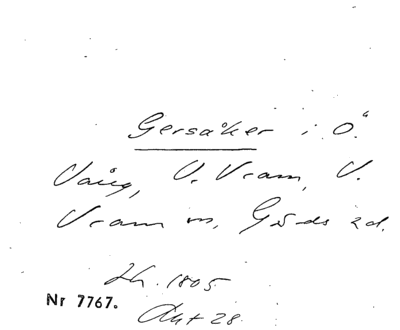 Gersåker i Ö.
Vång, V. Vram, V.
Vram m, Gärds hd.
Jh. 1805.
Nr 7767.
Akt 28.